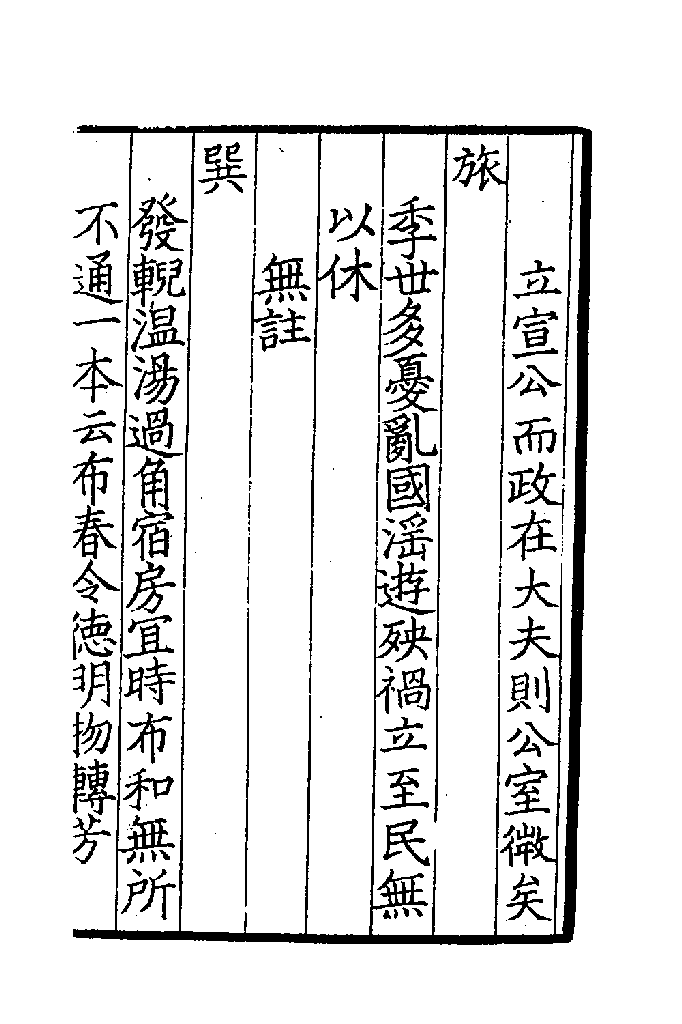 立宣公而政在大夫則公室微矣
旅
季世多憂亂國滛遊殃禍立至民無
以休
無註
巽
發輗温湯過角宿房冝時布和無所
不通一本云布春令徳明物轉芳